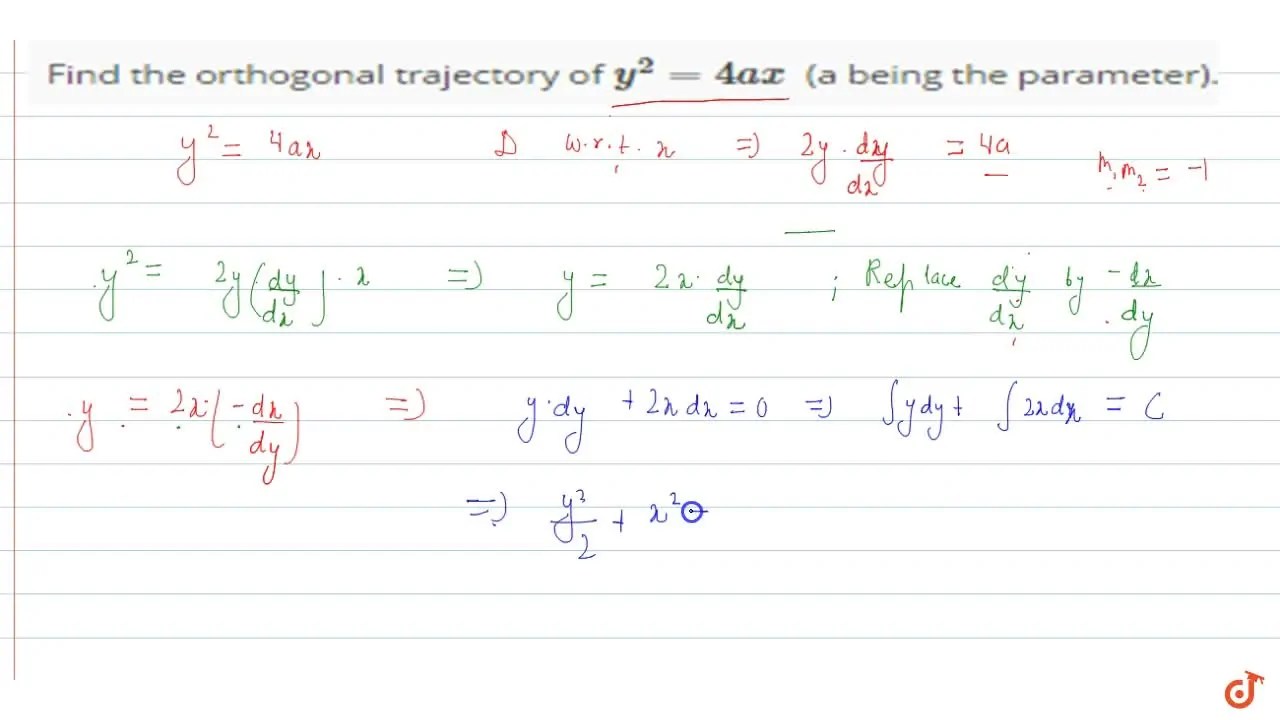 Find the orthogonal trajectory of y² = 4ax (a being the parameter).
y² = 4ax D w.r.t. x => 2y · dy/dx = 4a m₁m₂ = -1
y² = 2y(dy/dx) · x => y = 2x · dy/dx ; Replace dy/dx by -dx/dy
y = 2x · (-dx/dy) => y·dy + 2x dx = 0 => ∫y dy + ∫2x dx = C
=> y²/2 + x²